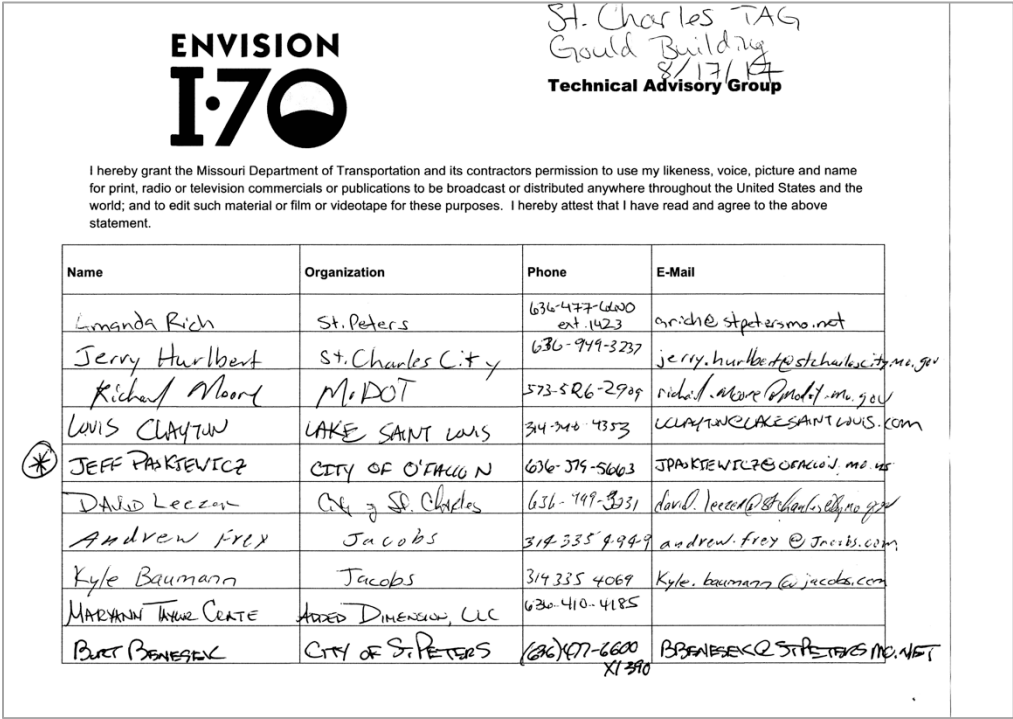 St. Charles TAG
Gould Building
8/17/17
ENVISION
I•70
Technical Advisory Group
I hereby grant the Missouri Department of Transportation and its contractors permission to use my likeness, voice, picture and name
for print, radio or television commercials or publications to be broadcast or distributed anywhere throughout the United States and the
world; and to edit such material or film or videotape for these purposes. I hereby attest that I have read and agree to the above
statement.
Name Organization Phone E-Mail
Amanda Rich St. Peters 636-477-6600 ext. 1423 arich@stpetersmo.net
Jerry Hurlbert St. Charles City 636-949-3237 jerry.hurlbert@stcharlescitymo.gov
Richard Moore MoDOT 573-526-2909 richard.moore@modot.mo.gov
LOUIS CLAYTON LAKE SAINT LOUIS 314-340-4353 LCLAYTON@LAKESAINTLOUIS.COM
* JEFF PASKIEWICZ CITY OF O'FALLON 636-379-5663 JPASKIEWICZ@OFALLON.MO.US
DAVID Leezer City of St. Charles 636-949-3231 david.leezer@stcharlescitymo.gov
Andrew Frey Jacobs 314-335 4949 andrew.frey@Jacobs.com
Kyle Baumann Jacobs 314 335 4069 Kyle.baumann@jacobs.com
MARYANN TAYLOR CRATE ADDED DIMENSION, LLC 636-410-4185
BURT BENESEK CITY OF ST. PETERS (636)477-6600 X1390 BBENESEK@STPETERSMO.NET